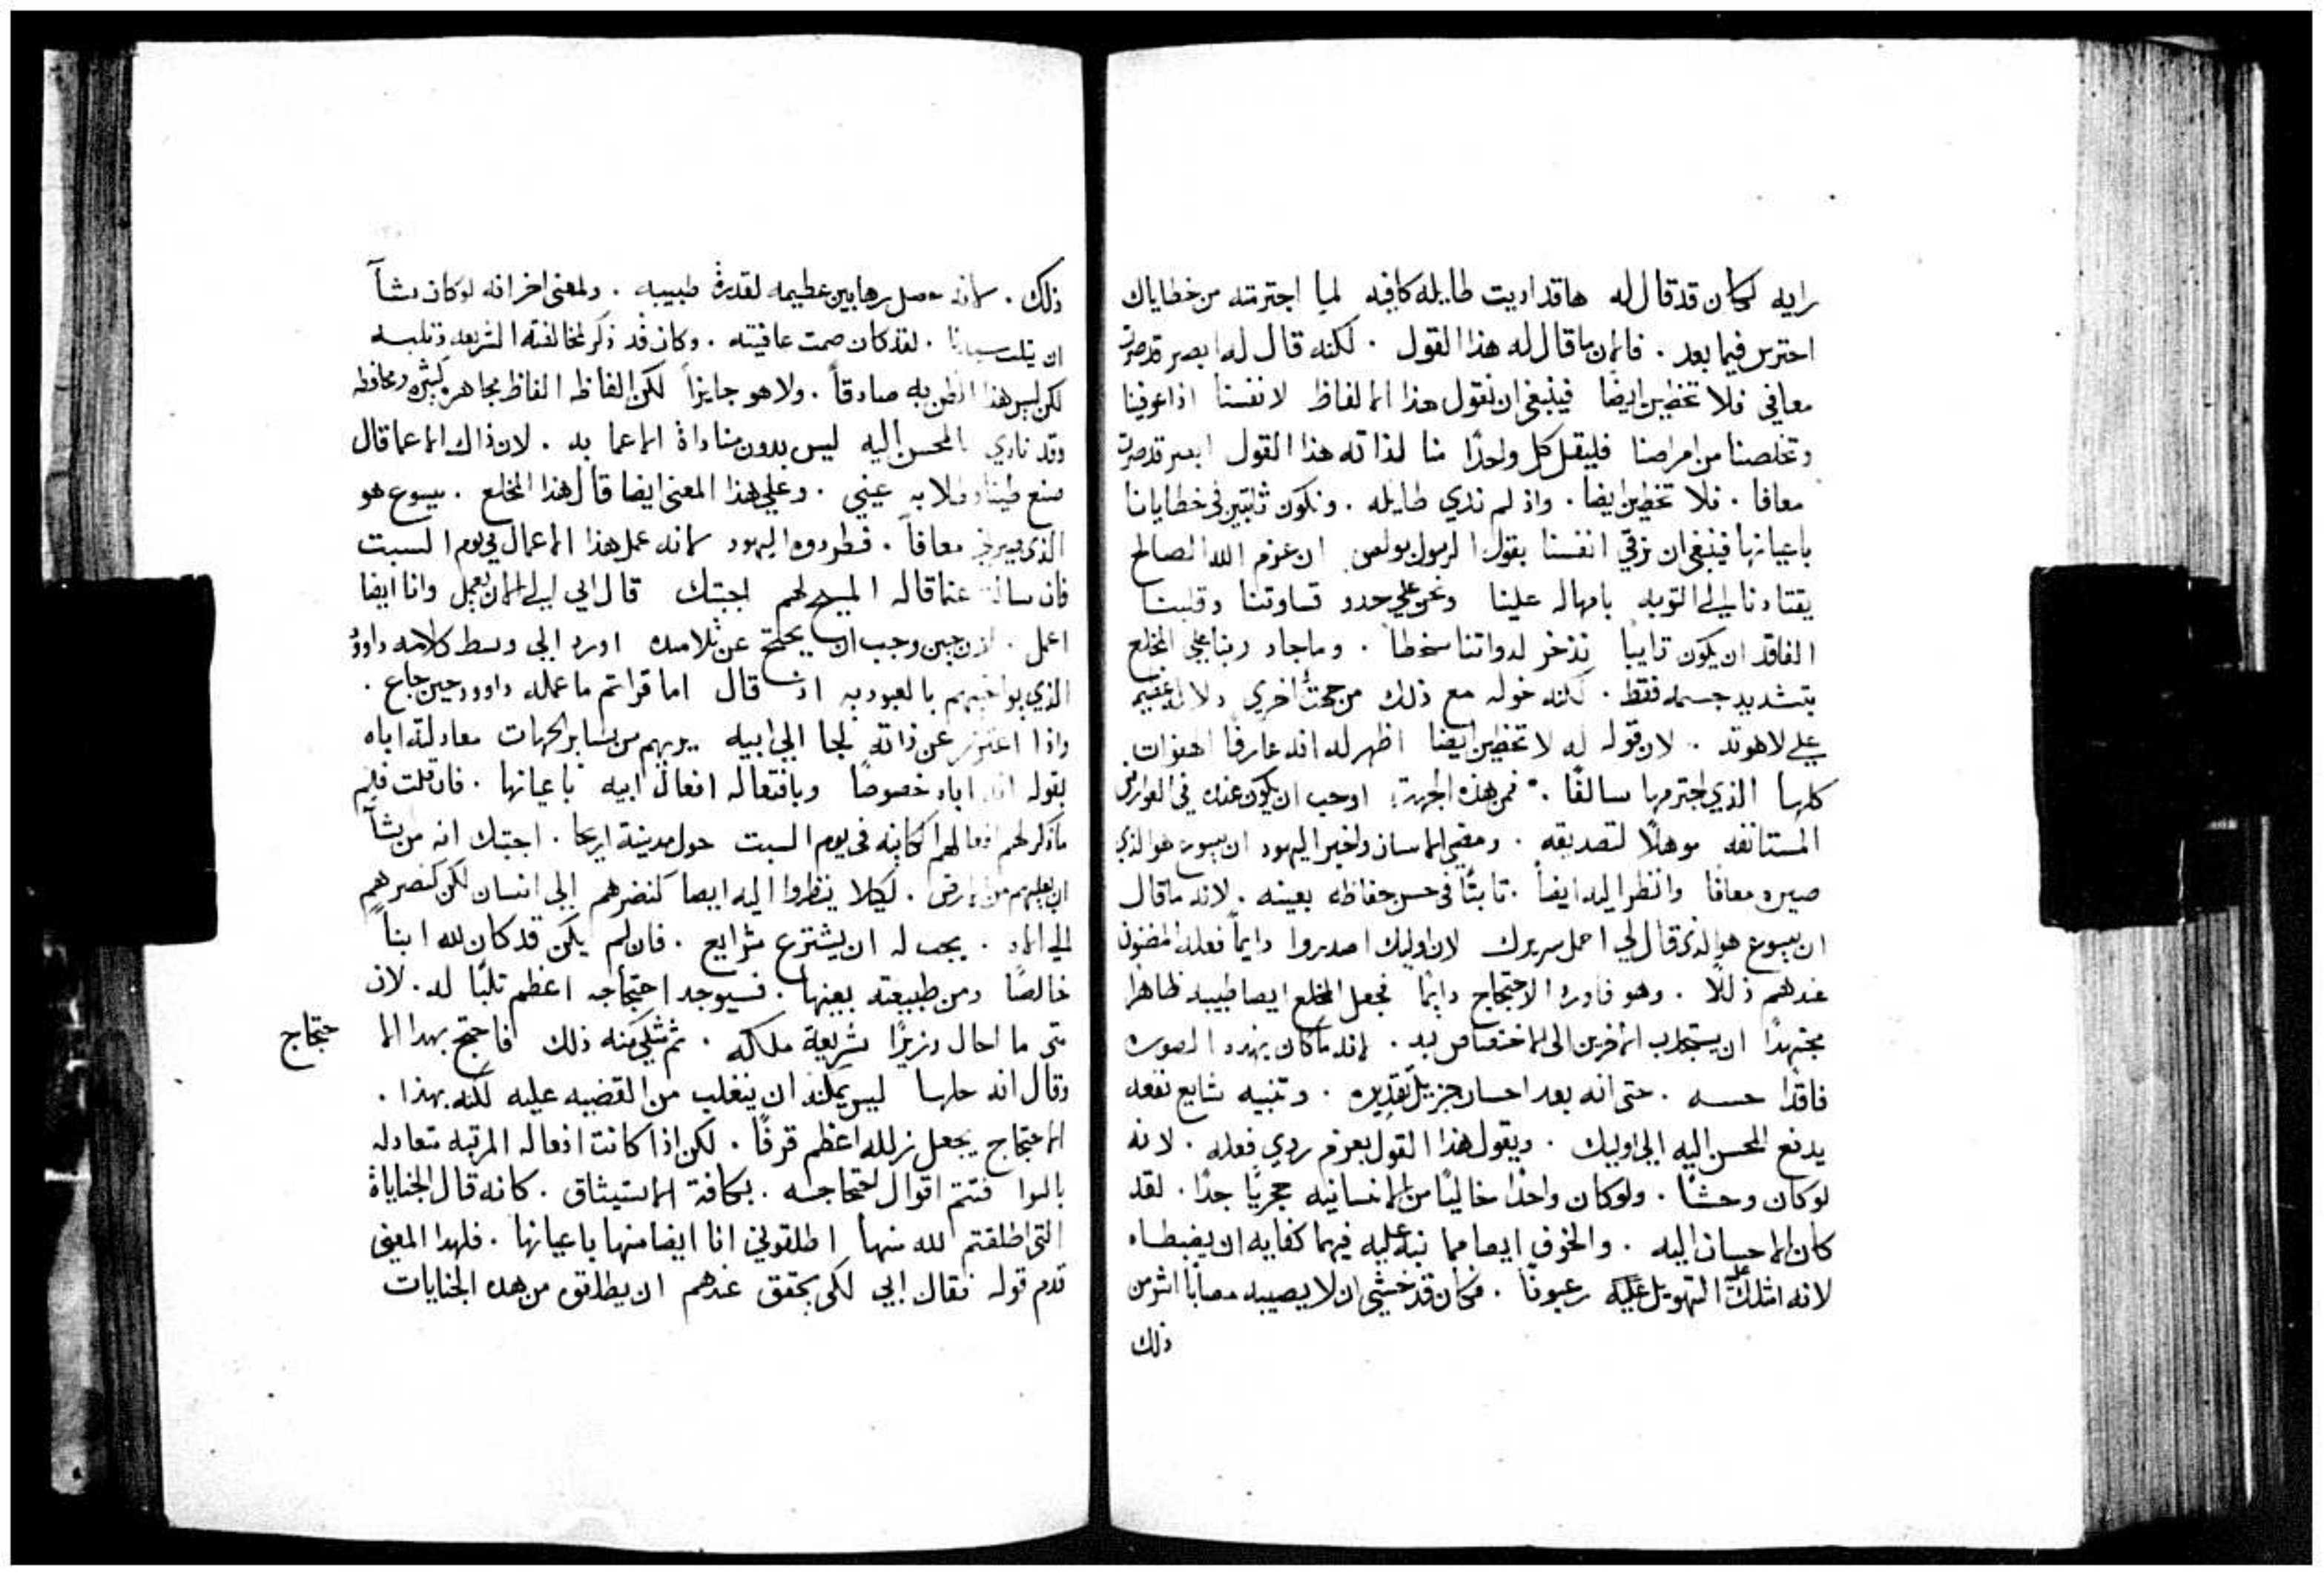 رايه لكان قد قال له هاقد اديت طايله كافيه لما اجترمته من خطاياك
احترس فيما بعد . فالان ما قال له هذا القول . لكنه قال له ابصر قد صرت
معافي فلا تخطين ايضا فينبغي ان نقول هذا الالفاظ لانفسنا اذا عوفينا
وتخلصنا من امراضنا فليقل كل واحدًا منا لذاته هذا القول ابصر قد صرت
معافا . فلا تخطين ايضا . واذ لم نذي طايله . ونكون ثابتين في خطايانا
باعيانها فينبغي ان نرقي انفسنا بقول الرسول بولص ان عزم الله الصالح
يقتادنا الي التوبه بامهاله علينا ونحن علي حدو قساوتنا وقلبنا
الفاقد ان يكون تايبًا نذخر لدواتنا سخطًا . وما جاد ربنا علي المخلع
بتشديد جسمه فقط . لكنه خوله مع ذلك من جهت اخري دلاله عظيمه
علي لاهوته . لان قوله له لا تخطين ايضا اظهر له انه عارفًا الهفوات
كلها الذي اجترمها سالفًا . فمن هذه الجهة اوجب ان يكون عنده في العوارض
المستانفه موهلًا لتصديقه . ومضي الانسان واخبر اليهود ان يسوع هو الذي
صيره معافا وانظر اليه ايضاً . ثابتًا في حسن حفاظه بعينه . لانه ما قال
ان يسوع هو الذي قال لي احمل سريرك لان اوليك اصدروا دايمًا فعله المضنون
عندهم زللًا . وهو فاورد الاحتجاج دايمًا فجعل المخلع ايضا طبيبه ظاهرًا
مجتهدًا ان يستجذب اخرين الي الاختصاص به . لانه ما كان بهذه الصوره
فاقدًا حسه . حتي انه بعد احسان جزيل تقديره . وتنبيه شايع نفعه
يدفع المحسن اليه الي اوليك . ويقول هذا القول بعزم ردي فعله . لانه
لو كان وحشًا . ولو كان واحدًا خاليًا من الانسانيه حجريًا جدًا . لقد
كان الاحسان اليه . والخوف ايضا مما نبه عليه فيهما كفايه ان يضبطاه
لانه امتلك التهويل عليه رعبوتًا . فكان قد خشي ان لا يصيبه مصابًا اشر من
ذلك
ذلك . لانه حصل رهابين عظيمه لقدرة طبيبه . ولمعني اخر انه لو كان يشآ
ان يثلب سيدنا . لقد كان صمت عافيته . وكان قد ذكر لمخالفته الشريعه وثلبه
لكن ليس هذا الظن به صادقاً . ولا هو جايزاً لكن الفاظه الفاظ مجاهره كثيره ومحافظه
وقد نادي بالمحسن اليه ليس بدون مناداة الاعما به . لان ذاك الاعما قال
صنع طينا وطلا به عيني . وعلي هذا المعني ايضا قال هذا المخلع . يسوع هو
الذي صيرني معافاً . فطردوه اليهود لانه عمل هذا الاعمال في يوم السبت
فان سالت عما قاله المسيح لهم اجبتك قال ابي الي الان يعمل وانا ايضا
اعمل . لان حين وجب ان يحتج عن تلاميذه اورد الي وسط كلامه داوود
الذي يواخيهم بالعبوديه اذ قال اما قراتم ما عمله داوود حين جاع .
واذا اعتذر عن ذاته لجا الي ابيه يريهم من ساير الجهات معادلته اباه
بقوله انه اباه خصوصًا وبافتعاله افعال ابيه باعيانها . فان قلت فلِمَ
ما ذكر لهم افعالهم الكاينه في يوم السبت حول مدينة اريحا . اجبتك انه من يشآ
ان يعليهم من الارض . لكيلا ينظروا اليه ايضا كنضرهم الي انسان لكن كنضرهم
الي الاه . يجب له ان يشترع شرايع . فان لم يكن قد كان لله ابناً
خالصًا ومن طبيعته بعينها . فسيوجد احتجاجه اعظم ثلبًا له . لان
متي ما احال وزيرًا شريعة ملكه . ثم شُكي منه ذلك فاحتج بهدا الا حتجاج
وقال انه حلها ليس يمكنه ان ينفلت من القضيه عليه لكنه بهذا .
الاحتجاج يجعل زلله اعظم قرفًا . لكن اذا كانت افعاله المرتبه متعادله
بالسوا فتتم اقوال احتجاجه . بكافة الاستيثاق . كانه قال الجناياة
التي اطلقتم الله منها اطلقوني انا ايضا منها باعيانها . فلهدا المعني
قدم قوله فقال ابي لكي يحقق عندهم ان يطلقوه من هده الجنايات